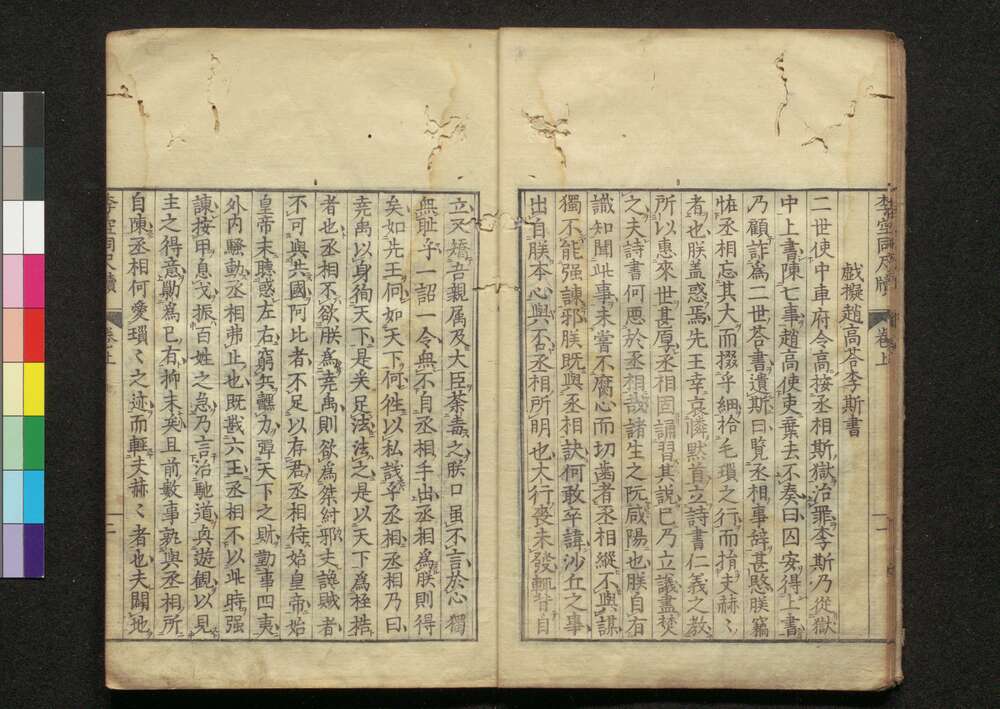 李空同尺牘 卷上 一
戯擬趙高荅李斯書
二世使中車府令高按丞相斯獄治罪李斯乃從獄
中上書陳七事趙高使吏棄去不奏曰囚安得上書
乃顧詐爲二世荅書遺斯曰覧丞相事辞甚愍朕竊
恠丞相忘其大而掇乎細拾毛瑣之行而揹夫赫〻
者也朕盖惑焉先王幸哀憐黙首立詩書仁義之教
所以惠來世甚厚丞相固誦習其說巳乃立議盡焚
之夫詩書何悪於丞相哉諸生之阬咸陽也朕自有
識知聞此事未嘗不腐心而切齒者丞相縱不與謀
獨不能强諫邪朕既與丞相訣何敢卒諱沙丘之事
出自朕本心與否丞相所明也大行喪未發輙詐自
立又矯吾親属及大臣荼毒之朕口虽不言於心獨
無耻乎一詔一令無不自丞相手出丞相爲朕則得
矣如先王何如天下何徃以私誚丞相丞相乃曰
尭禹以身徇天下是关足法法之是以天下爲桎梏
者也丞相不欲朕爲尭禹則欲爲桀紂邪夫讒賊者
不可與共國阿比者不足以存君丞相侍始皇帝始
皇帝末聴惑左右窮兵黷力彈天下之財勤事四夷
外内騒動丞相弗止也既戮六王丞相不以此時强
諫按甲息戈振百姓之急乃言治馳道與遊観以見
主之得意勛爲巳有抑末矣且前數事孰與丞相所
自陳丞相何愛瑣〻之迹而輕夫赫〻者也夫闢地
李空同尺牘 卷上 一